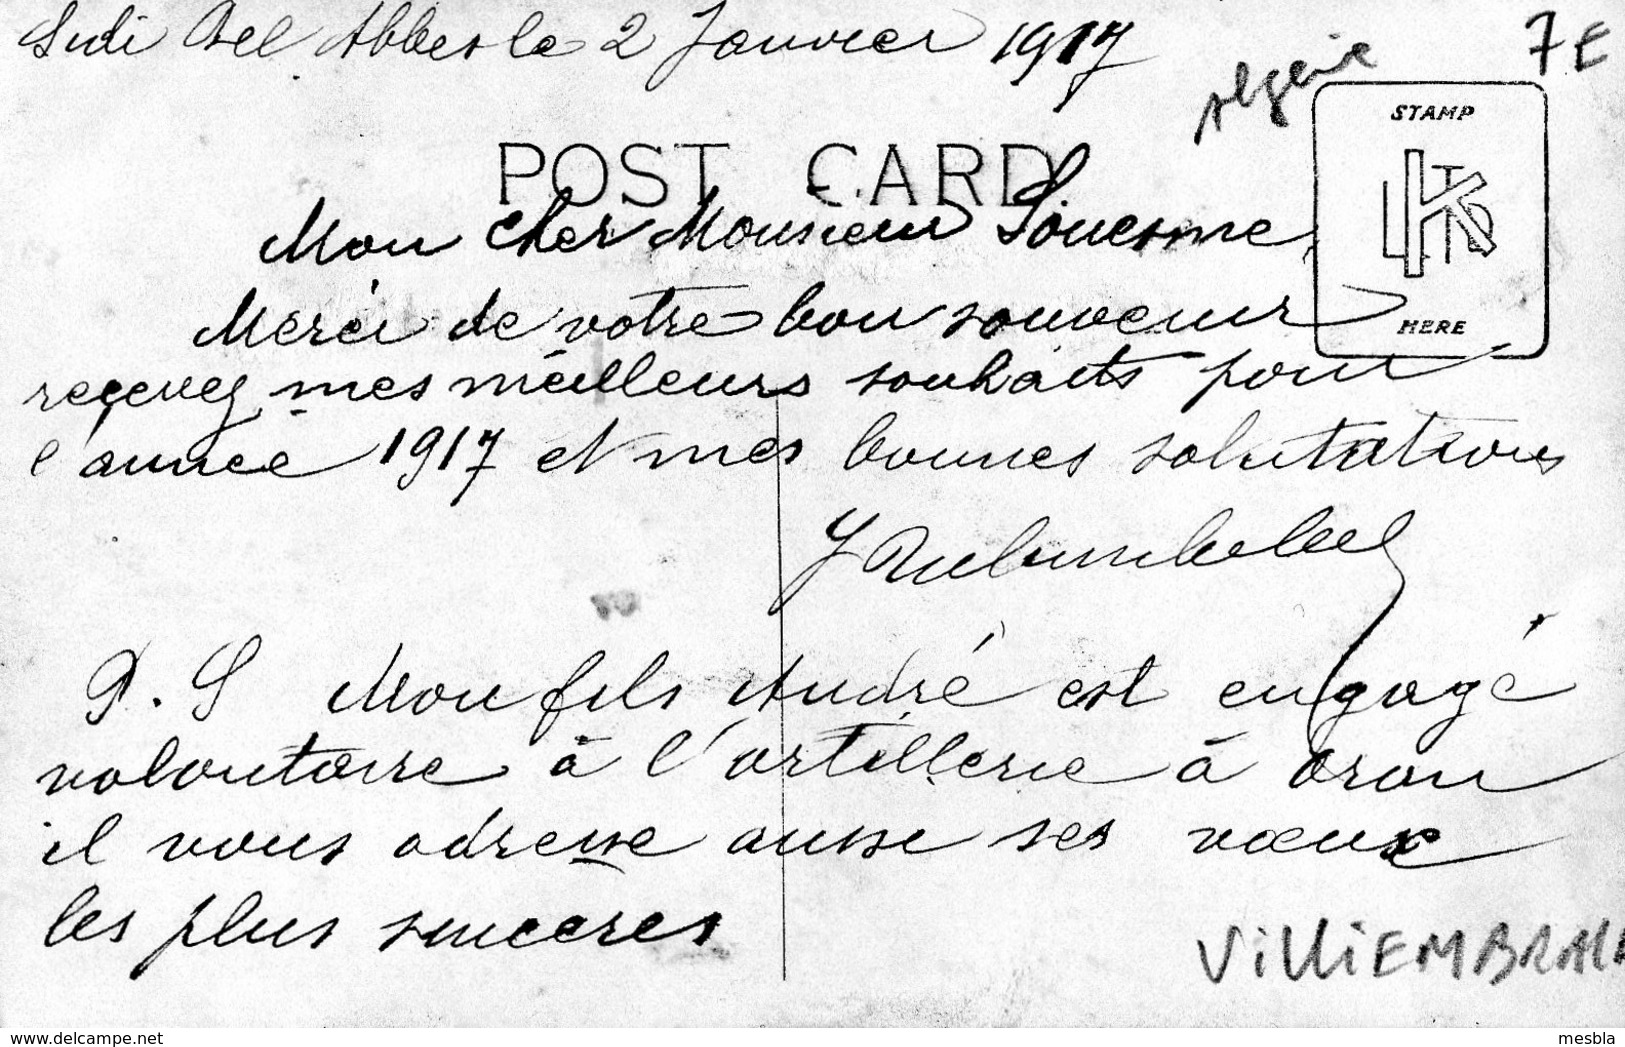 Sidi Bel Abbes le 2 Janvier 1917
Algérie
7E
STAMP
HERE
POST CARD
Mon cher Monsieur
Merci de votre bon souvenir
recevez mes meilleurs souhaits pour
l'année 1917 et mes bonnes salutations
P.S Mon fils André est engagé
volontaire à l'artillerie à Oran
il vous adresse aussi ses vœux
les plus sincères
ViLLiEMBRAI
delcampe.net
mesbla